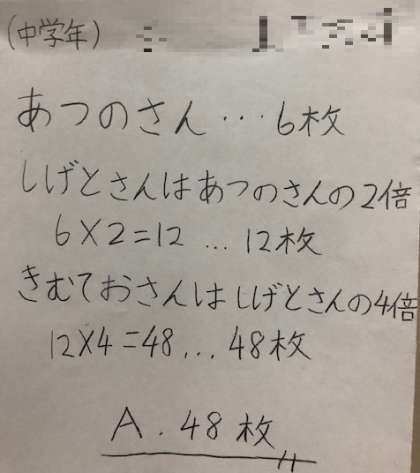 (中学年)
あつのさん…6枚
しげとさんはあつのさんの2倍
6×2=12…12枚
きむておさんはしげとさんの4倍
12×4=48…48枚
A.48枚